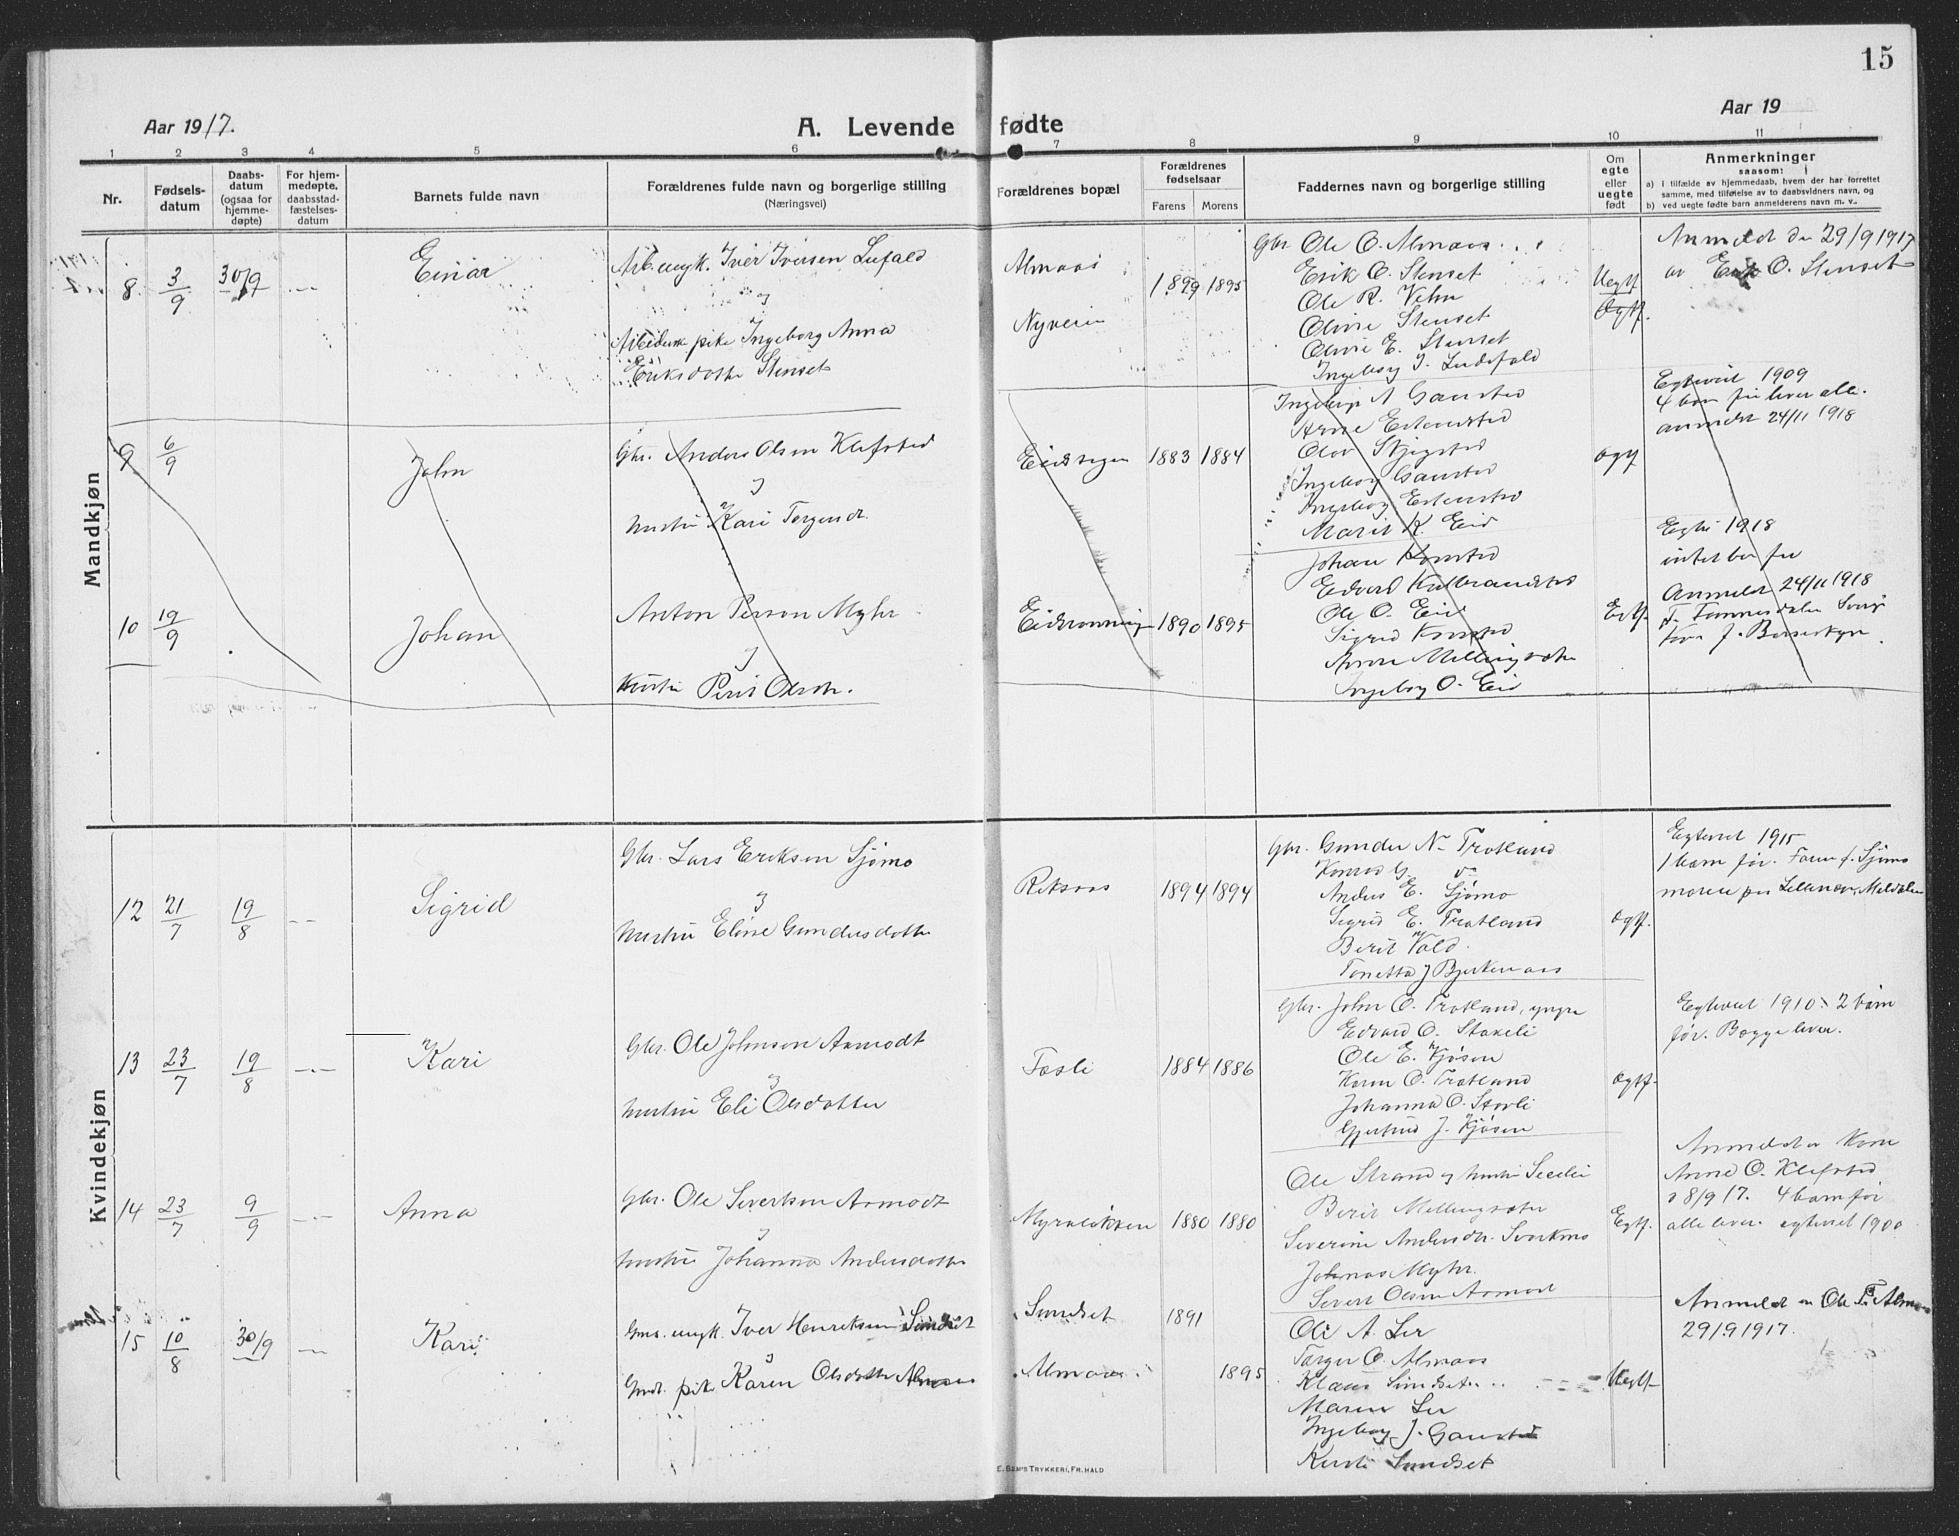 15
Aar 1917.
A. Levende fødte
Aar 19
1 2 3 4 5 6 7 8 9 10 11
Nr.
Fødsels-
datum
Daabs-
datum
(ogsaa for
hjemme-
døpte)
For hjem-
medøpte,
daabsstad-
fæstelses-
datum
Barnets fulde navn
Forældrenes fulde navn og borgerlige stilling
(Næringsvei)
Forældrenes bopæl
Forældrenes
fødselsaar
Farens Morens
Faddernes navn og borgerlige stilling
Om
egte
eller
uegte
født
Anmerkninger
saasom:
a) i tilfælde av hjemmedaab, hvem der har forrettet
samme, med tilføielse av to daabsvidners navn, og
b) ved uegte fødte barn anmelderens navn m. v..
Mandkjøn
8. 3/9 30/9
Einar
Arb. ungk. Iver Iversen
Arbeiderske pike Ingeborg Anna
Eriksdotter Stenset
Almaas
1899 1895
Gbr Ole O. Almaas
Erik O. Stenset
Ole R.
Oline Stenset
Oline E. Stenset
Ingeborg I.
Uegtf
Egtf.
Anmeldt 29/9 1917
av Erik O. Stenset
9 6/9
John
Gbr. Anders Olsen Klefstad
og
hustru Kari Torgersdr.
1883 1884
Ingeborg A Gaustad
Arne Estenstad
Olav
Ingeborg Gaustad
Ingeborg Estenstad
Marit K. Eid
Egtf
Egteviet 1909
4 barn før lever alle.
anmeldt 24/11 1918
10 19/9
Johan
Anton Person Myhr
og
Hustru Berit Olsdtr.
Eidsrønningen 1890 1895
Johan Konstad
Edvard Kulbrandstad
Ole O. Eid
Sigrid Konstad
Anne Mellingsæter
Ingeborg O. Eid
Egtf.
1918
intet barn før
Anmeldt 24/11 1918
Kvindekjøn
12 21/7 19/8
Sigrid
Gbr. Lars Erikson Sjømo
og
hustru Eline Gundersdotter
1894 1894
Gbr. Gunder N. Trotland
Konrad G. do
Anders E. Sjømo
Sigrid E. Trotland
Berit Vold.
Tonetta J Bjerkenaas
Egtf.
Egteviet 1915
1 barn før. Faren f. Sjømo
moren paa Meldalen
13 23/7 19/8
Kari
Gbr. Ole Johnson Aamodt
og
hustru Eli Olsdotter
Fosli
1884 1886
Gbr. John O. Trotland, yngre
Edvard O.
Ole E. Kjøsen
Karen O. Trotland
Johanna O.
Gjertrud J. Kjøsen
Egtf.
Egteviet 1910. 2 barn
før. Begge lever.
14 23/7 9/9
Anna
Gbr. Ole Sivertsen Aamodt
og
hustru Johanna Andersdotter
1880 1880
Ole Strand og hustru
Berit Mellingsæter
Severine Andersdtr.
Johnas Myhr.
Sivert Olsen Aamodt
Egtf.
Anmeldt av Kone
Anne O. Klefstad
8/9 17. 4 barn før
alle lever. egteviet 1900
15 10/8 30/9
Kari
Gmd. ungk. Iver Henriksen Sundset
og
Gmdr. pike Karen Olsdotter Almaas
Sundset 1891
Almaas 1895
Ole A. Ler
Torger O. Almaas
Klaus Sundset
Maren Ler
Ingeborg J. Gaustad
Kirsti Sundset
Uegtf
Anmeldt av Ole Almaas
29/9 1917.
E. SEM'S TRYKKERI, FR.HALD